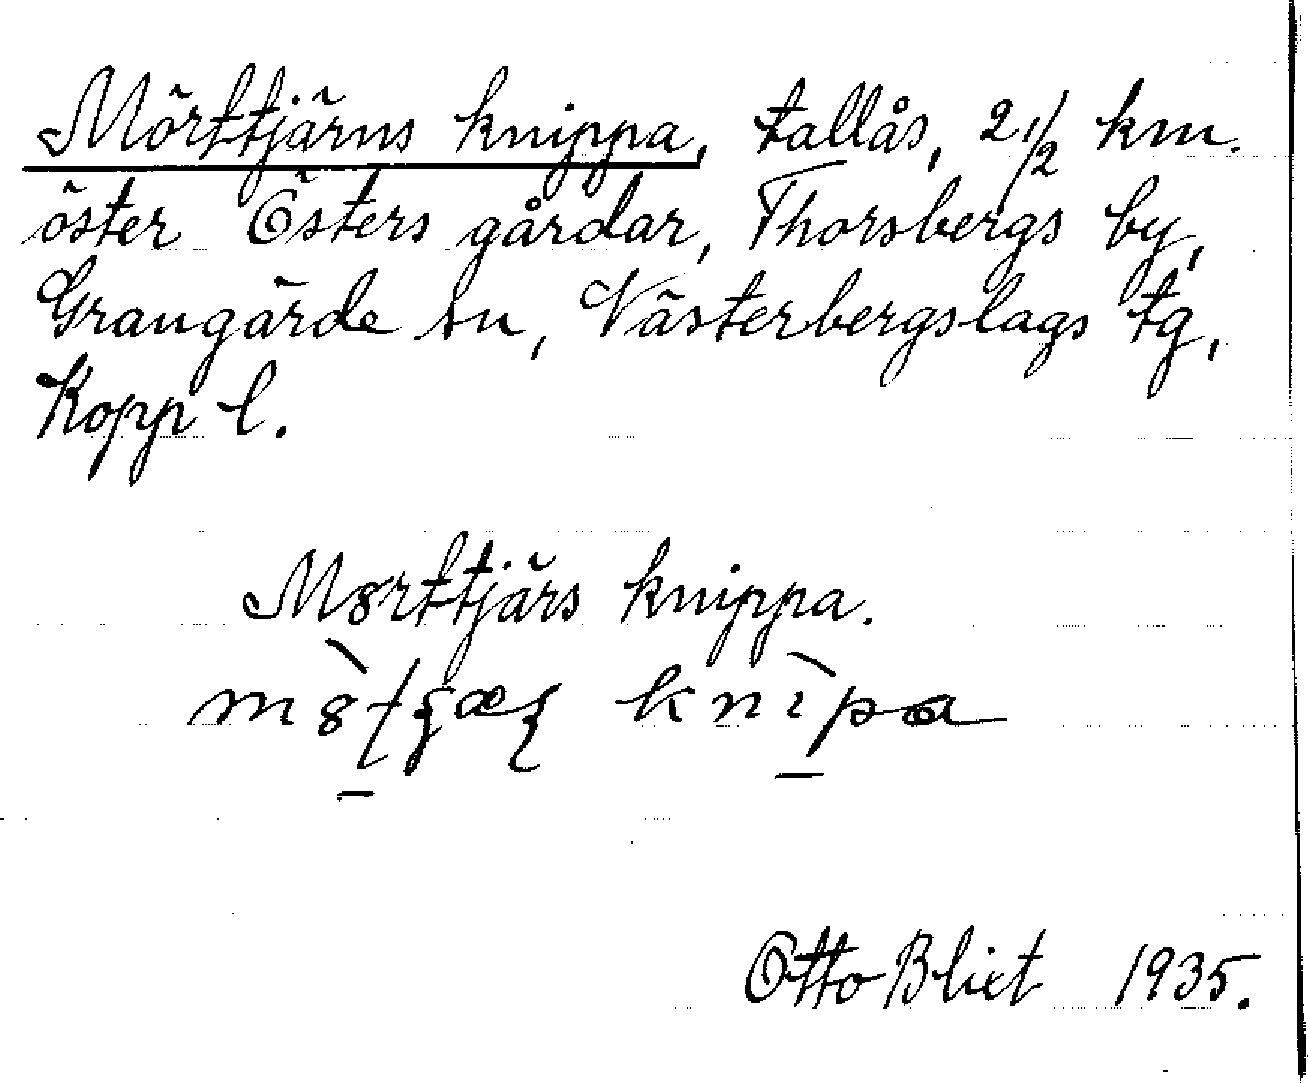 Mörttjärns knippa, tallås, 2 1/2 km.
öster Östers gårdar, Thorsbergs by,
Grangärde sn, Västerbergslags tg,
Kopp l.
Mørttjärs knippa.
knìpa
Otto Blixt 1935.